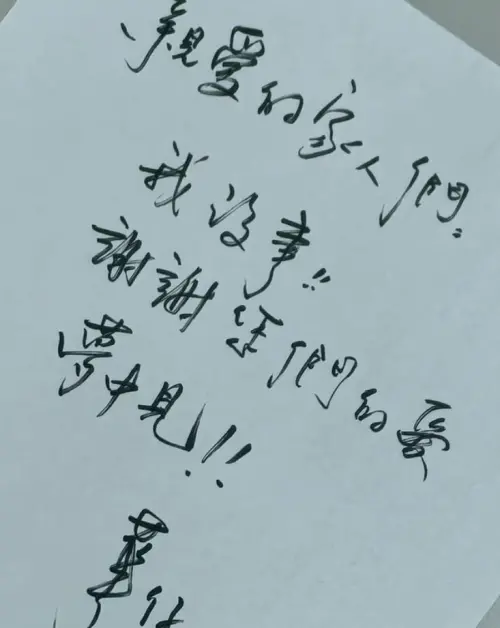 親愛的家人們:
我沒事!!
謝謝你們的愛
夢中見!!